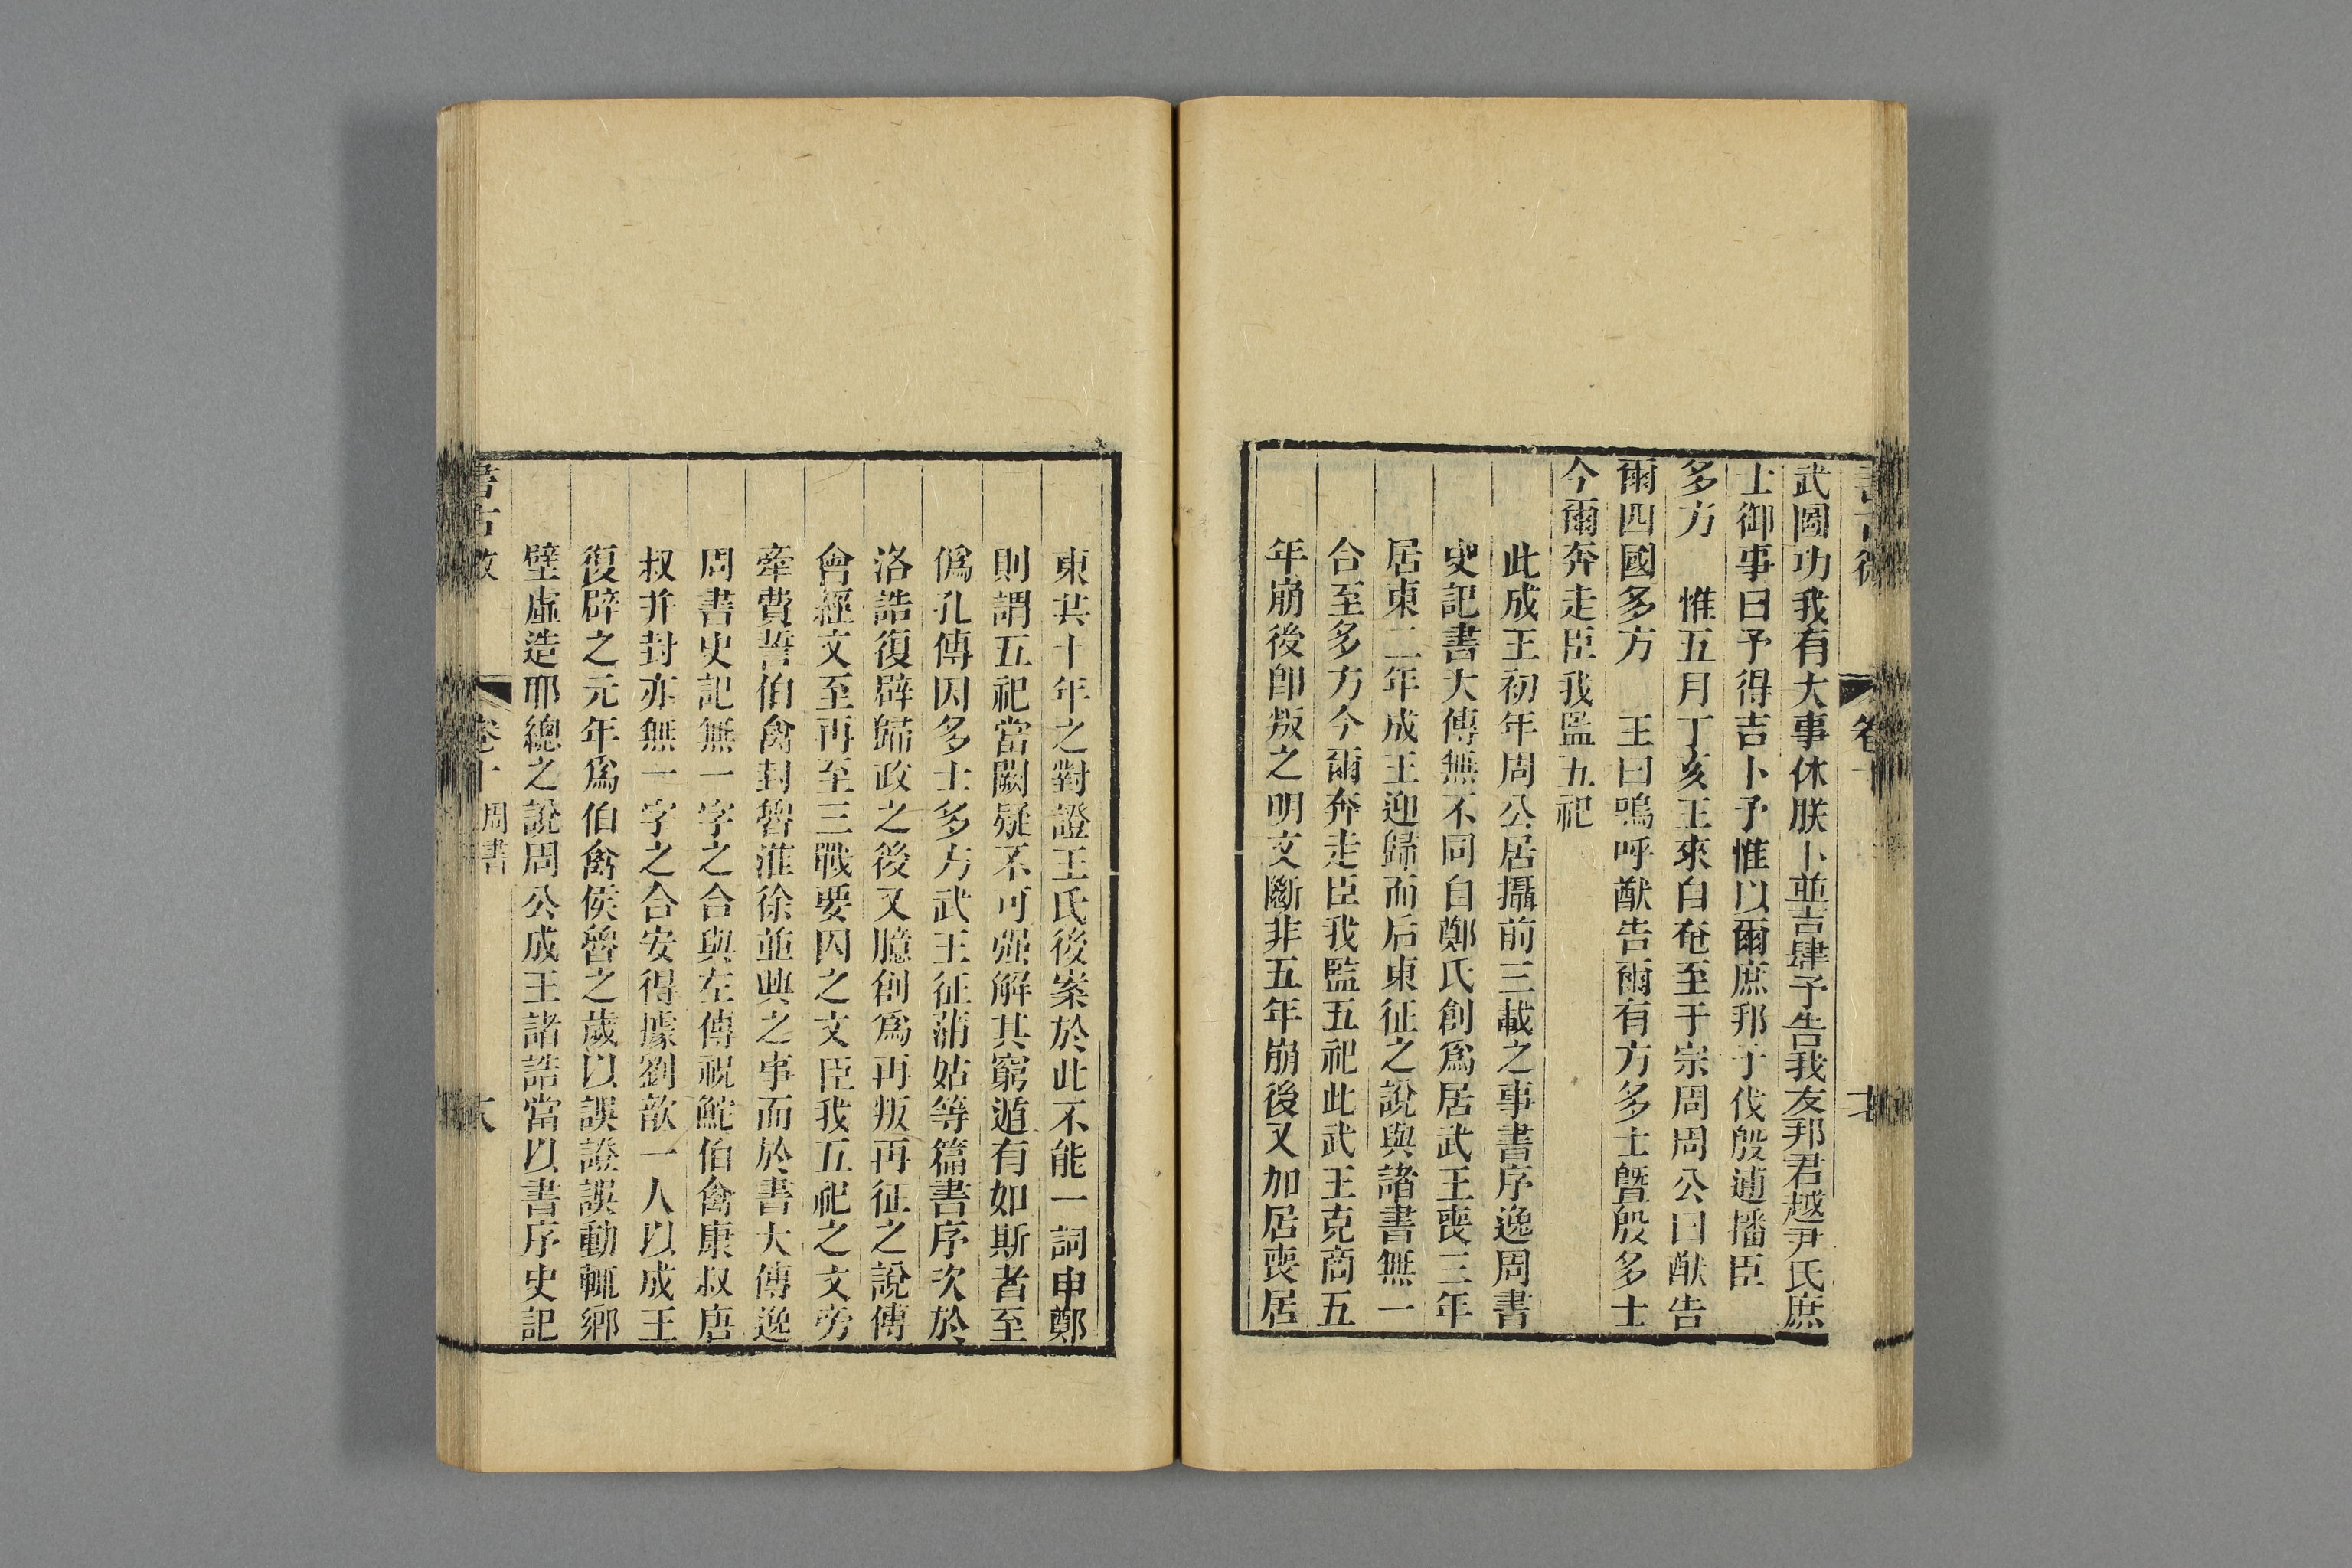 武圖功我有大事休朕卜並吉肆予告我友邦君越尹氏庶
士御事曰予得吉卜予惟以爾庶邦于伐殷逋播臣
多方　惟五月丁亥王來自奄至于宗周周公曰猷告
爾四國多方　王曰嗚呼猷告爾有方多士暨殷多士
今爾奔走臣我監五祀
此成王初年周公居攝前三載之事書序逸周書
史記書大傳無不同自鄭氏創爲居武王喪三年
居東二年成王迎歸而后東征之說與諸書無一
合至多方今爾奔走臣我監五祀此武王克商五
年崩後卽叛之明文斷非五年崩後又加居喪居
東共十年之對證王氏後案於此不能一詞申鄭
則謂五祀當闕疑不可强解其窮遁有如斯者至
僞孔傳因多士多方武王征蒲姑等篇書序次於
洛誥復辟歸政之後又臆創爲再叛再征之說傳
會經文至再至三戰要囚之文臣我五祀之文旁
牽費誓伯禽封魯淮徐並興之事而於書大傳逸
周書史記無一字之合與左傳祝鮀伯禽康叔唐
叔并封亦無一字之合安得據劉歆一人以成王
復辟之元年爲伯禽侯魯之歲以誤證誤動輒鄉
壁虛造耶總之說周公成王諸誥當以書序史記
書古微　卷十　周書